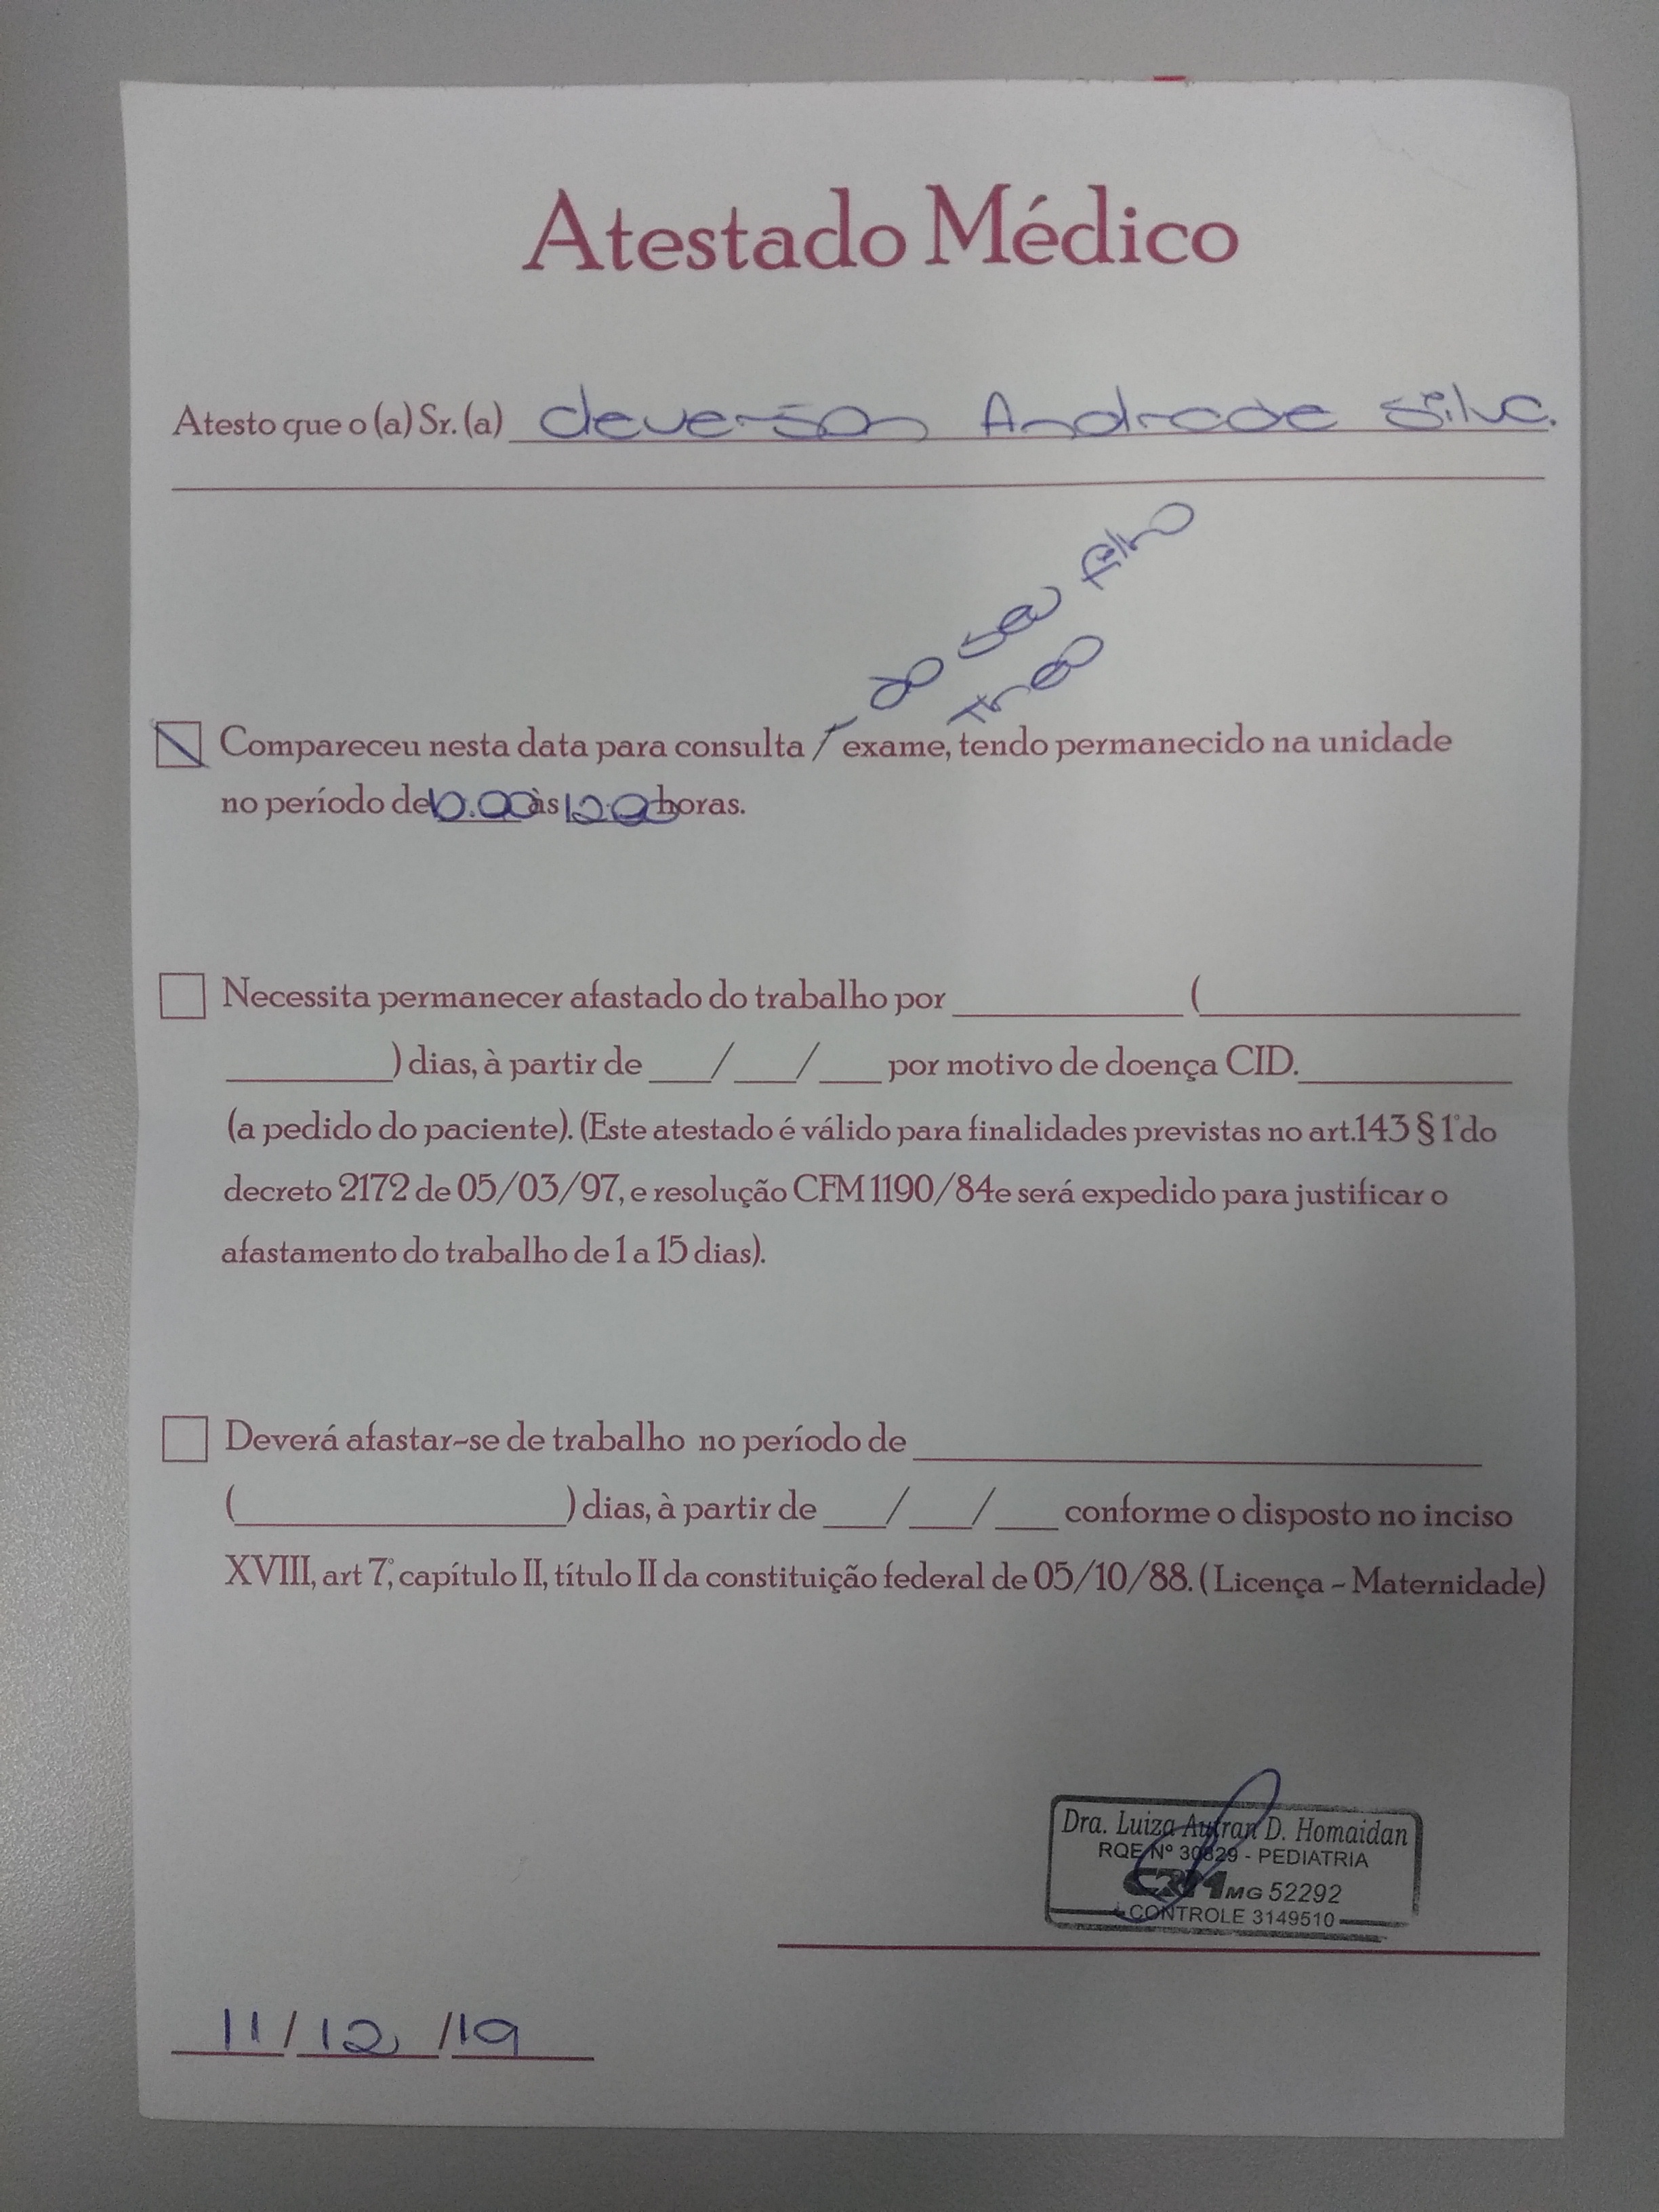 Atestado Médico
Atesto que o (a) Sr. (a) cleverson Andrade Silva.
do seu filho
Theo
Compareceu nesta data para consulta / exame, tendo permanecido na unidade
no período de 10:00 às 12:00 horas.
Necessita permanecer afastado do trabalho por ________ (________
________) dias, à partir de __/__/__ por motivo de doença CID.________
(a pedido do paciente). (Este atestado é válido para finalidades previstas no art.143 § 1º do
decreto 2172 de 05/03/97, e resolução CFM 1190/84e será expedido para justificar o
afastamento do trabalho de 1 a 15 dias).
Deverá afastar-se de trabalho no período de ________
(________) dias, à partir de __/__/__ conforme o disposto no inciso
XVIII, art 7º, capítulo II, título II da constituição federal de 05/10/88. ( Licença - Maternidade)
Dra. Luiza Autran D. Homaidan
RQE Nº 30829 - PEDIATRIA
CRM MG 52292
CONTROLE 3149510
11/12/19